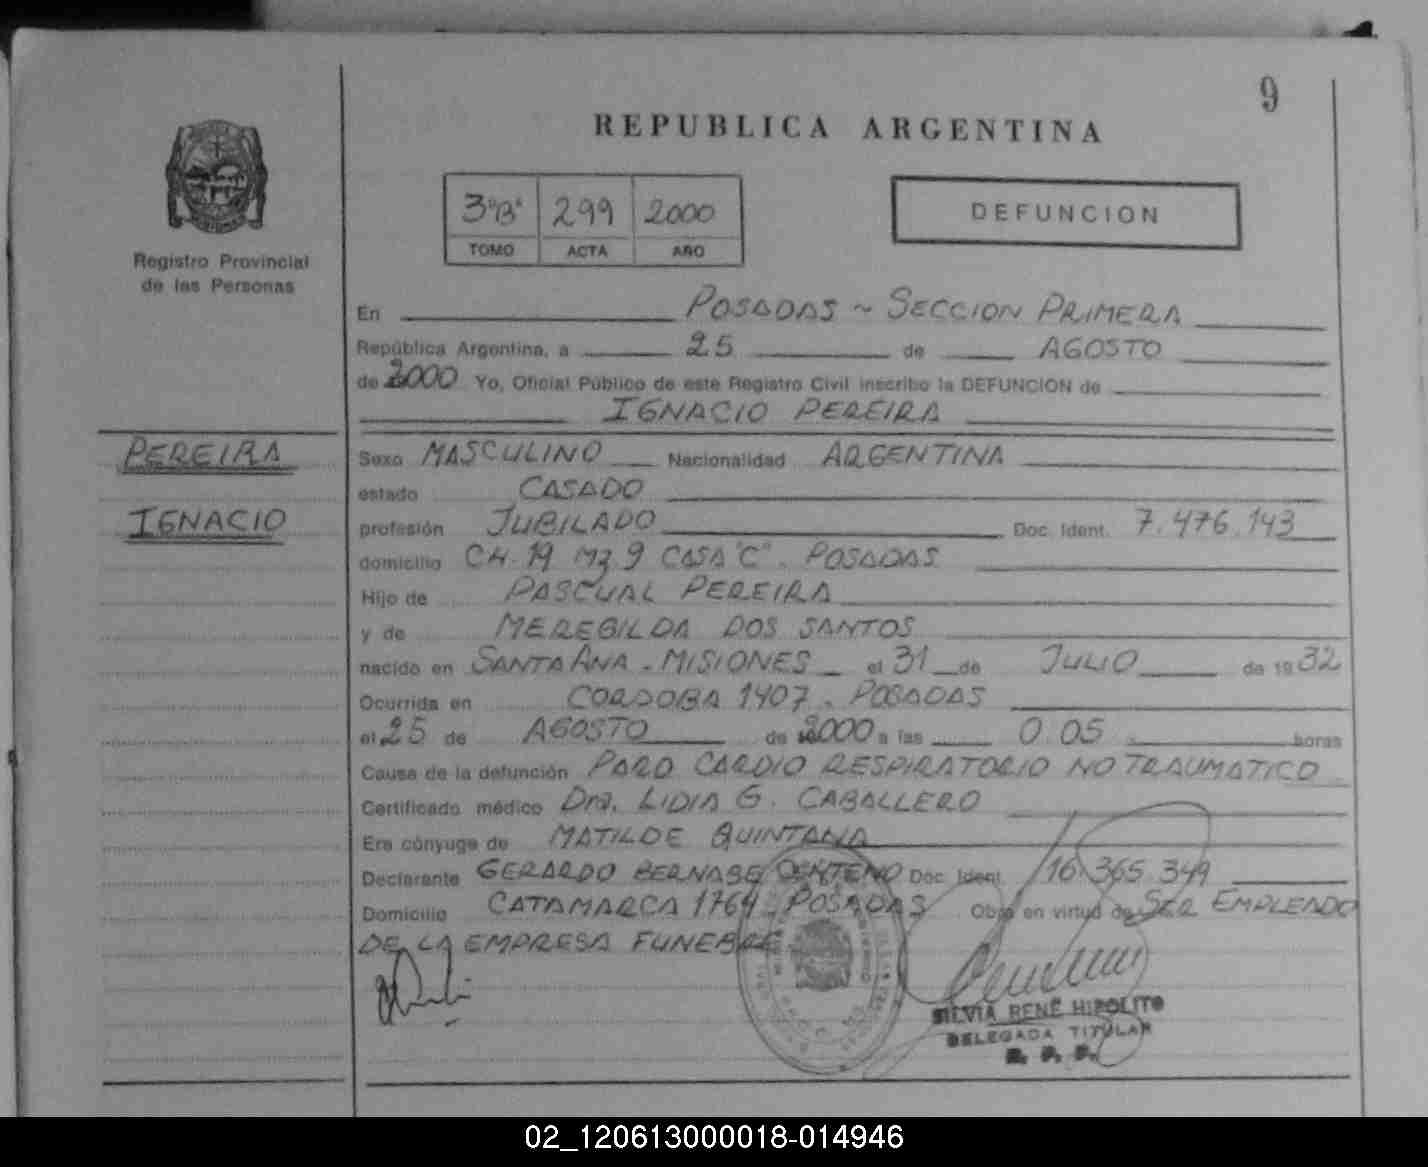 9
REPUBLICA ARGENTINA
3"B" 299 2000
TOMO ACTA AÑO
DEFUNCION
Registro Provincial
de las Personas
En POSADAS ~ SECCION PRIMERA
República Argentina, a 25 de AGOSTO
de 2000 Yo, Oficial Público de este Registro Civil inscribo la DEFUNCION de
IGNACIO PEREIRA
PEREIRA
IGNACIO
Sexo MASCULINO Nacionalidad ARGENTINA
estado CASADO
profesión JUBILADO Doc. Ident. 7.476.143
domicilio CH. 19 Mz 9 CASA "C". POSADAS
Hijo de PASCUAL PEREIRA
y de MEREGILDA DOS SANTOS
nacido en SANTA ANA - MISIONES el 31 de JULIO de 1932
Ocurrida en CORDOBA 1407. POSADAS
el 25 de AGOSTO de 2000 a las 0.05 horas
Causa de la defunción PARO CARDIO RESPIRATORIO NO TRAUMATICO
Certificado médico Dra. LIDIA G. CABALLERO
Era cónyuge de MATILDE QUINTANA
Declarante GERARDO BERNABE CENTENO Doc. Ident. 16.365.349
Domicilio CATAMARCA 1764 - POSADAS Obra en virtud de SER EMPLEADO
DE LA EMPRESA FUNEBRE
SILVIA RENÉ HIPOLITO
DELEGADA TITULAR
R. P. P.
02_120613000018-014946